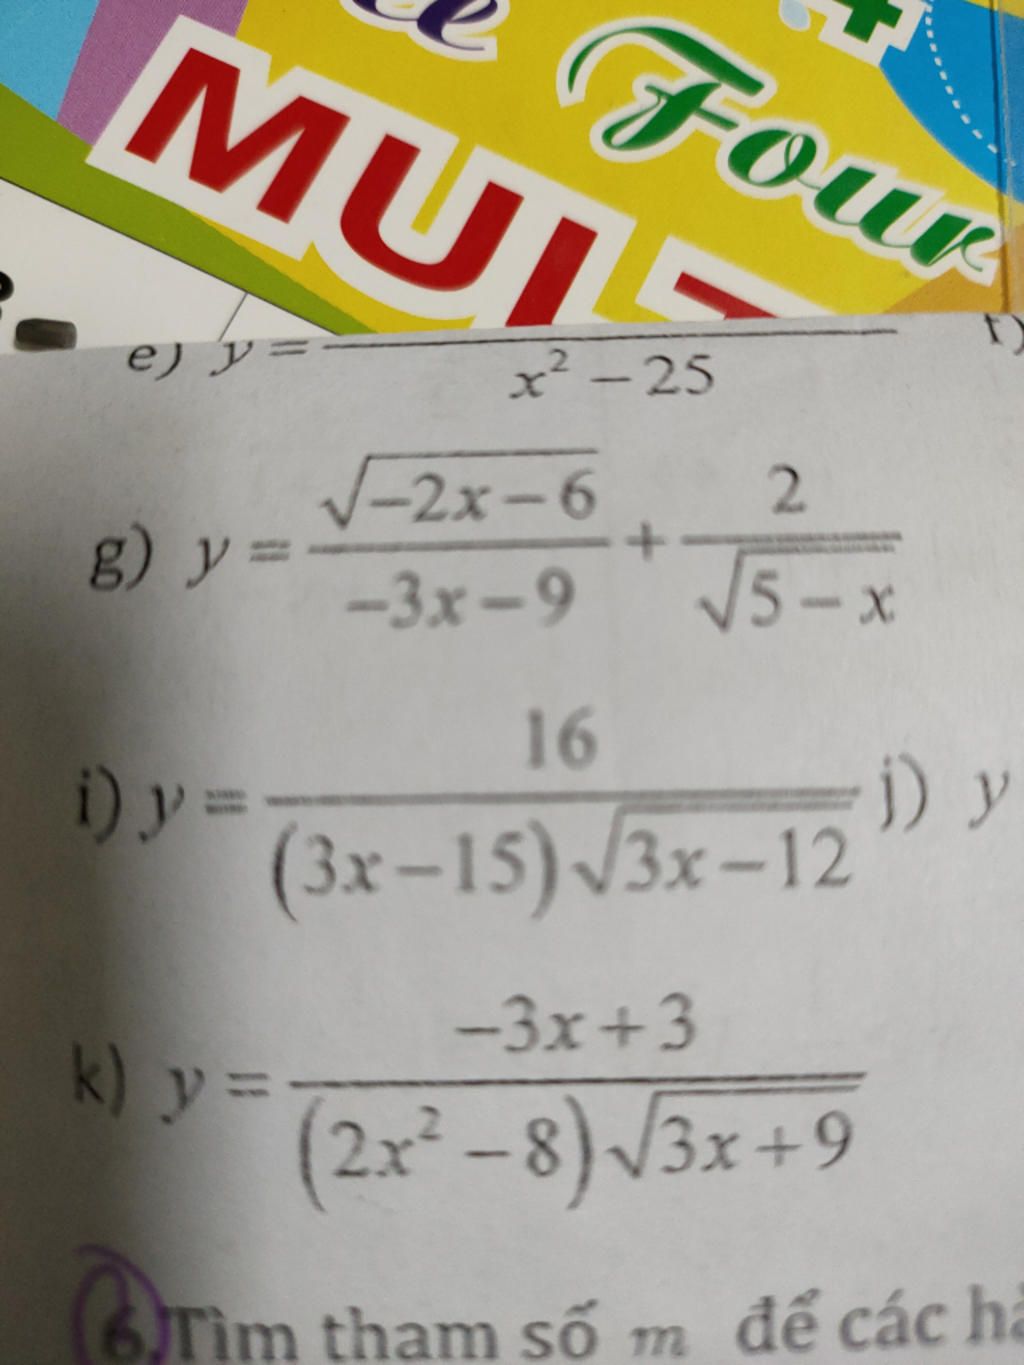 Four
MUL
e) y = ――― / x² − 25
g) y = √(−2x − 6) / (−3x − 9) + 2 / √(5 − x)
i) y = 16 / ((3x − 15)√(3x − 12)) j) y
k) y = (−3x + 3) / ((2x² − 8)√(3x + 9))
6. Tìm tham số m để các